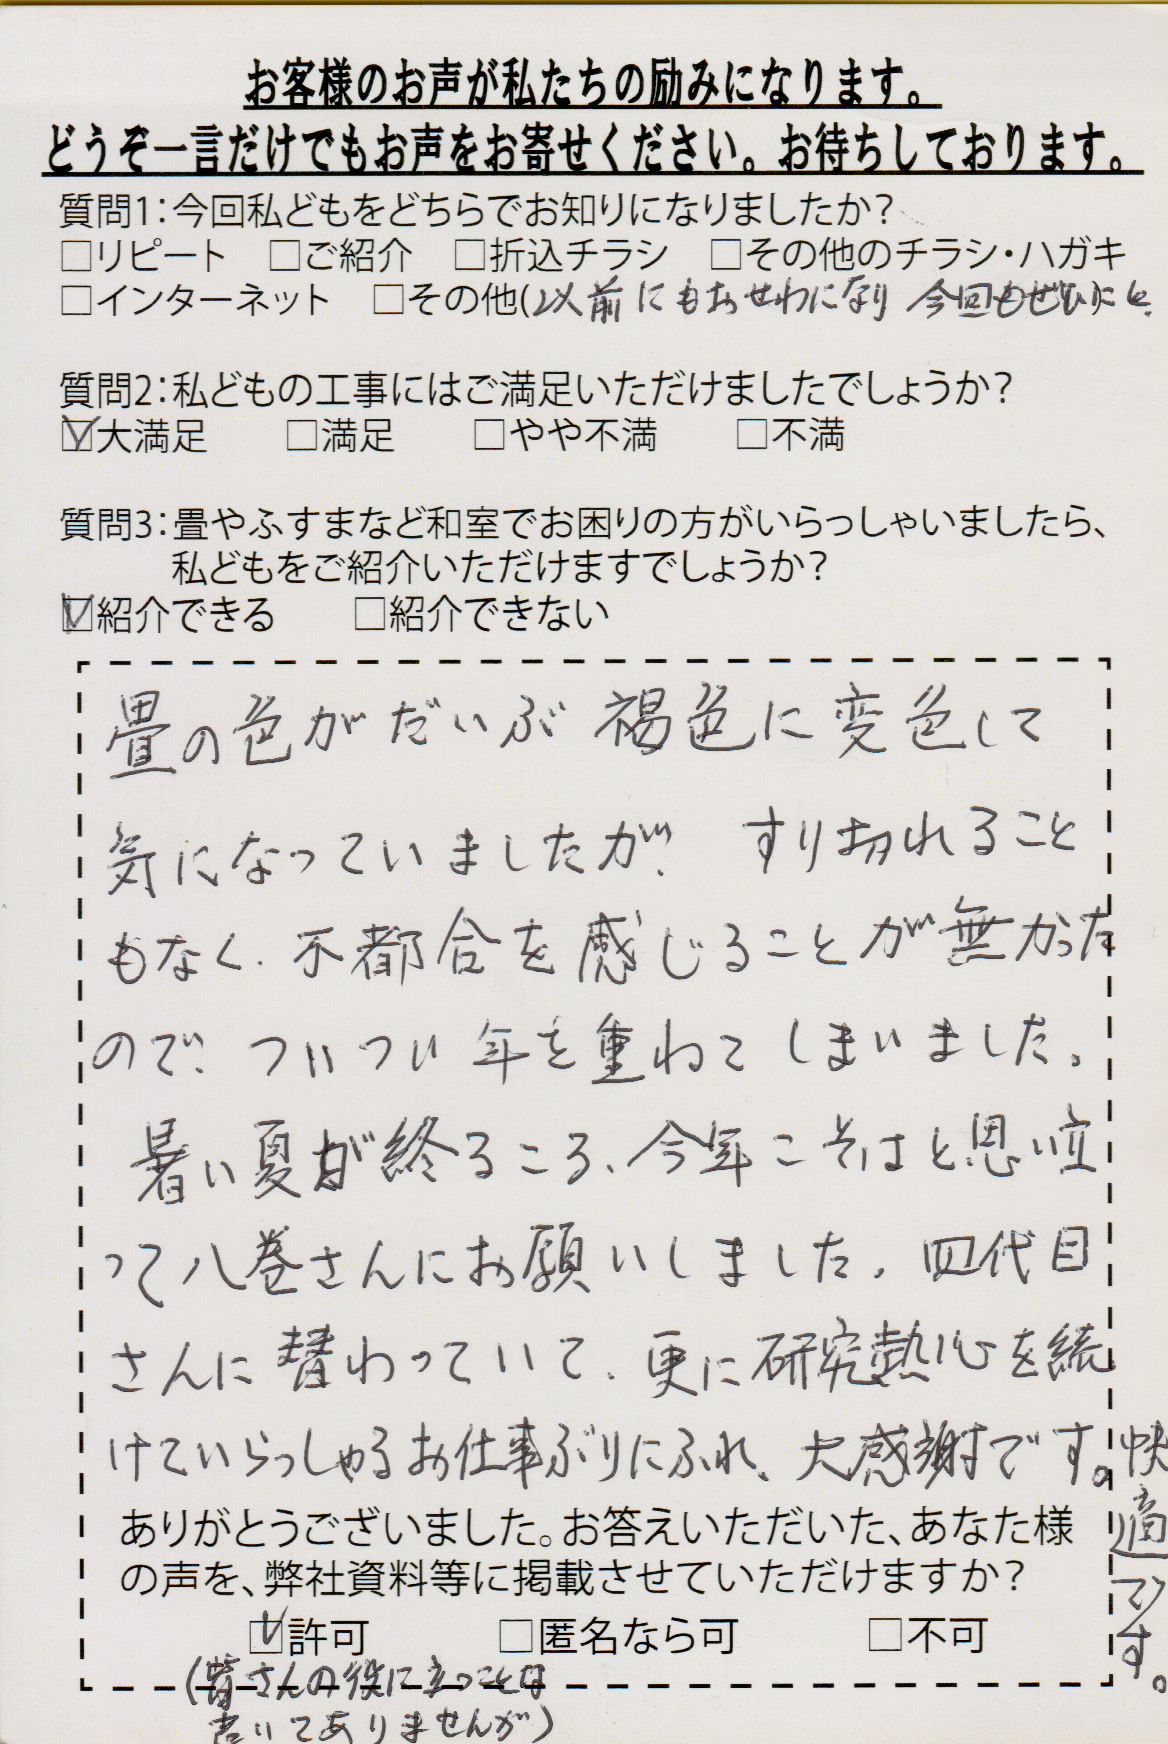 お客様のお声が私たちの励みになります。
どうぞ一言だけでもお声をお寄せください。お待ちしております。
質問1:今回私どもをどちらでお知りになりましたか?
□リピート □ご紹介 □折込チラシ □その他のチラシ・ハガキ
□インターネット □その他(以前にもおせわになり 今回もぜひ)にと.
質問2:私どもの工事にはご満足いただけましたでしょうか?
☑大満足 □満足 □やや不満 □不満
質問3:畳やふすまなど和室でお困りの方がいらっしゃいましたら、
私どもをご紹介いただけますでしょうか?
☑紹介できる □紹介できない
畳の色がだいぶ褐色に変色して
気になっていましたが、すり切れること
もなく、不都合を感じることが無かった
ので、ついつい年を重ねてしまいました。
暑い夏が終るころ、今年こそはと思い立
って八巻さんにお願いしました。四代目
さんに替わっていて、更に研究熱心を続
けていらっしゃるお仕事ぶりにふれ、大感謝です。快
適です。
ありがとうございました。お答えいただいた、あなた様
の声を、弊社資料等に掲載させていただけますか?
☑許可 □匿名なら可 □不可
(皆さんの役に立つことな
書いてありませんが)